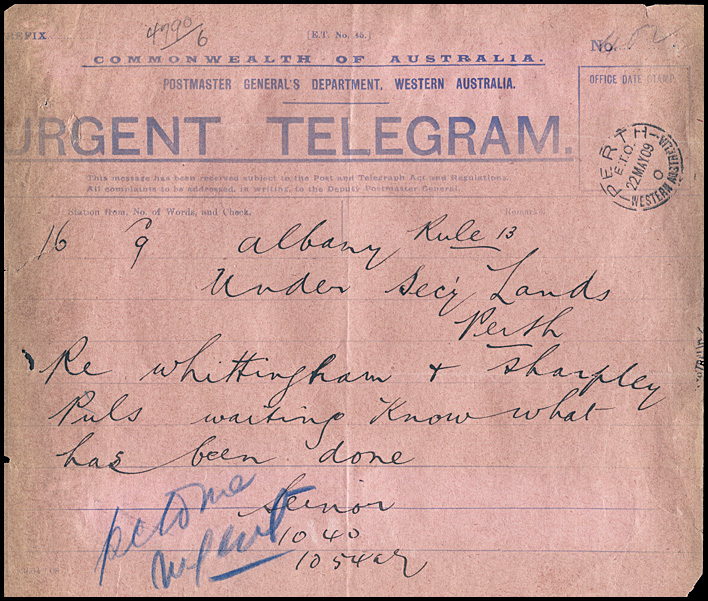 REFIX
4790/6
[E.T. No. 45.]
No.
COMMONWEALTH OF AUSTRALIA.
POSTMASTER GENERAL'S DEPARTMENT, WESTERN AUSTRALIA.
OFFICE DATE STAMP.
URGENT TELEGRAM.
PERTH
E.T.O.
22MAY09
0
WESTERN AUSTRALIA
This message has been received subject to the Post and Telegraph Act and Regulations.
All complaints to be addressed, in writing, to the Deputy Postmaster General.
Station from, No. of Words, and Check.
Remarks
16 9 Albany Rule 13
Under Secy Lands
Perth
Re Whittingham + Sharpley
Puls waiting Know what
has been done
Senior
1040
1054
urgent